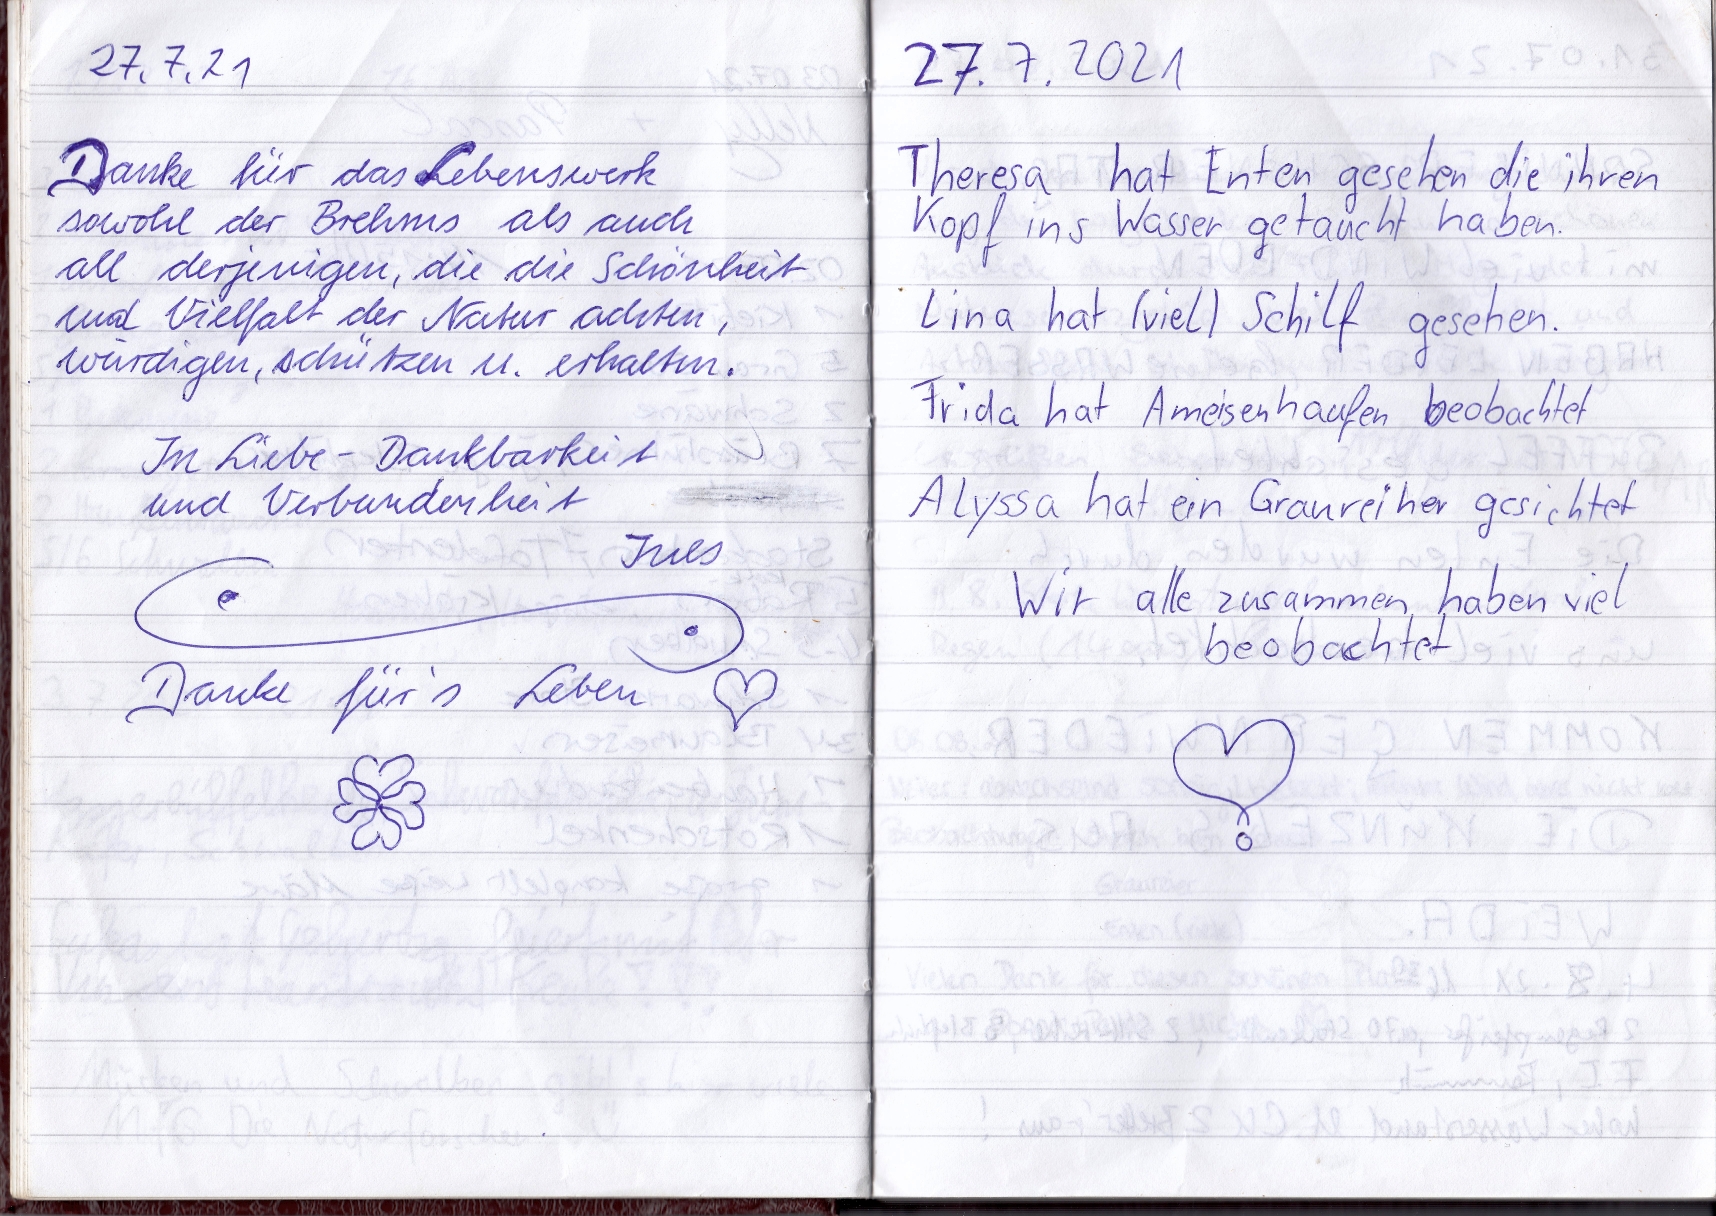 27.7.21
Danke für das Lebenswerk
sowohl der Brehms als auch
all derjenigen, die die Schönheit
und Vielfalt der Natur achten,
würdigen, schützen u. erhalten.
In Liebe - Dankbarkeit
und Verbundenheit
Ines
Danke für's Leben
27.7.2021
Theresa hat Enten gesehen die ihren
Kopf ins Wasser getaucht haben.
Lina hat (viel) Schilf gesehen.
Frida hat Ameisenhaufen beobachtet
Alyssa hat ein Graureiher gesichtet
Wir alle zusammen haben viel
beobachtet